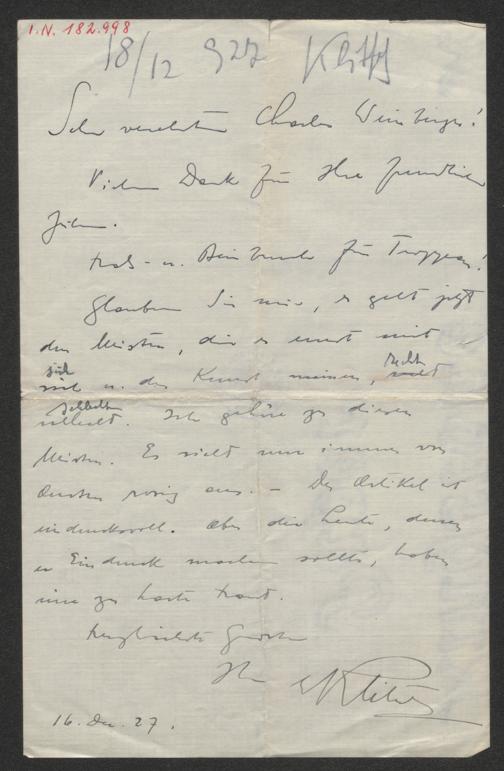 I.N. 182.998
18/12 927
Sehr verehrter Charles Weinberger!
Vielen Dank für Ihre freundlichen
Zeilen.
Hals- u. Beinbruch für Troppau!
Glauben Sie mir, es geht jetzt
den Meisten, die es ernst mit
sich u. der Kunst meinen, recht
schlecht. Ich gehöre zu diesen
Meisten. Es sieht nur immer von
aussen rosig aus. – Der Artikel ist
eindrucksvoll. Aber die Leute, denen
er Eindruck machen sollte, haben
eine zu harte Haut.
Herzlichste Grüsse
Ihr
16. Dez. 27.